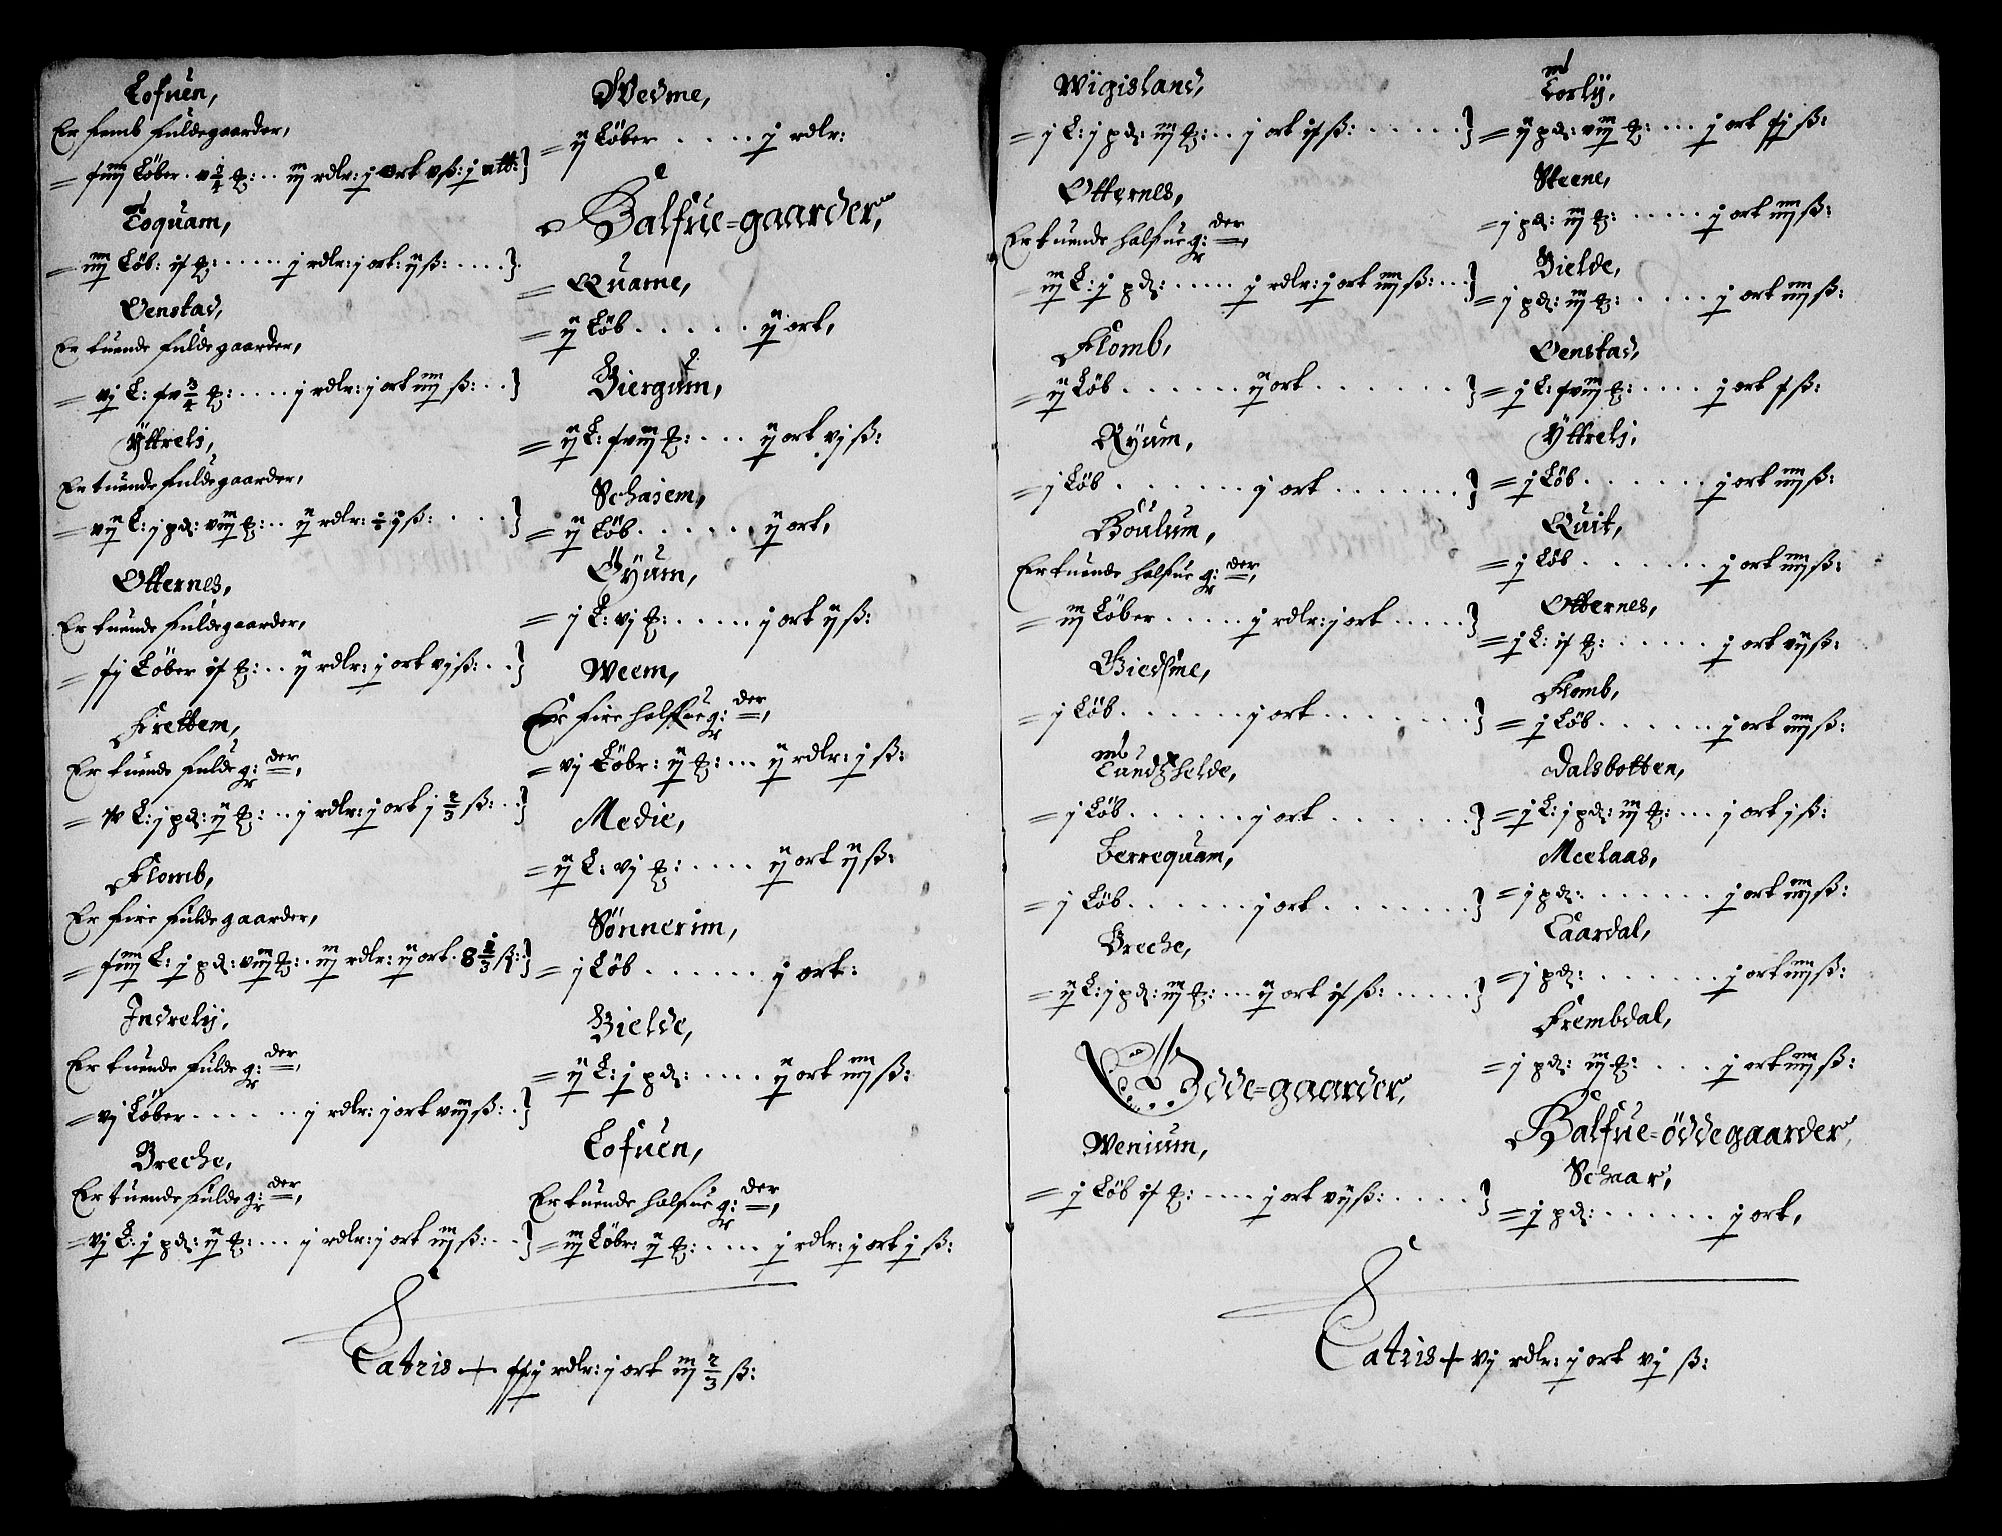 Lofuen,
Er femb fuldegaarder,
= xiiij Løber . v 3/4 ℔: . . iij rdlr: j ort v ß: j alb:}
Toquam,
= iiij Løb: ix ℔: . . . . . j rdlr: j ort: ij ß: . . . . .}
Oenstad,
Er tuende fuldegaarder,
= vj L: xv 3/4 ℔: . . . . j rdlr: j ort iiij ß: . . }
Yttrelj,
Er tuende fuldegaarder,
= vij L: j pd: viij ℔: . . ij rdlr: ij ß: . . . . }
Otternes,
Er tuende fuldegaarder,
= xj Løber ix ℔: . . ij rdlr: j ort vj ß: . . }
Frettem,
Er tuende fulde g:der,
= v L: j pd: ij ℔: . . j rdlr: j ort j 2/3 ß: . . }
Flomb,
Er fire fuldegaarder,
= xiiij L: j pd: viij ℔: . iij rdlr: ij ort . 8 1/3 ß: }
Indrelij,
Er tuende fulde g:der,
= vj Løber . . . . . . j rdlr: j ort viij ß: . }
Breche,
Er tuende fulde g:der,
= vj L: j pd: ij ℔: . . . j rdlr: j ort iij ß: . . }
Wedme,
= ij Løber . . . . j rdlr:
Halfue=gaarder,
Quame,
= ij Løb . . . . . ij ort,
Biergum,
= ij L: xviij ℔: . . . ij ort vj ß:
Schajem,
= ij Løb . . . . . ij ort,
Øyum,
= j L: vj ℔: . . . . . j ort ij ß:
Weem,
Er fire halffue g:der,
= vj Løbr: ij ℔: . . . ij rdlr: j ß:
Medie,
= ij L: vj ℔: . . . . ij ort ij ß:
Sønnerim,
= j Løb . . . . . . j ort:
Bielde,
= ij L: j pd: . . . . ij ort iiij ß:
Lofuen,
Er tuende halfue g:der,
= iij Løbr: ij ℔: . . . . j rdlr: j ort j ß:
Latris + xxj rdlr: j ort iij 2/3 ß:
Wigisland,
= j L: j pd: iij ℔: . . j ort ix ß: . . . . . . }
Otternes,
Er tuende halfue g:der,
iij L: j pd: . . . . . j rdlr: j ort iiij ß: . . . }
Flomb,
= ij Løb . . . . . . ij ort . . . . . . . }
Ryum,
= j Løb . . . . . . . j ort . . . . . . . }
Boulum,
Er tuende halfue g:der,
= iij Løber . . . . . j rdlr: j ort . . . . . }
Giedsme,
= j Løb . . . . . . j ort . . . . . . . . }
Lundzhelde,
= j Løb . . . . . . j ort . . . . . . . }
Berrequam,
= j Løb . . . . . . j ort . . . . . . . . }
Breche,
= ij L: j pd: iij ℔: . . . ij ort ix ß: . . . . . }
Ødde=gaarder,
Wenium,
= j Løb ix ℔: . . . . j ort vij ß: . . . . . }
Lorlij,
= ij pd: viij ℔: . . . j ort xj ß:
Steene,
= j pd: iij ℔: . . . . . j ort iiij ß:
Bielde,
= j pd: iij ℔: . . . . . j ort iiij ß:
Oenstad,
= j L: xviij ℔: . . . . j ort x ß:
Yttrelj,
= j Løb . . . . . . j ort iiij ß:
Quit,
= j Løb . . . . . . j ort iiij ß:
Otternes,
= j L: ix ℔: . . . . . . j ort vij ß:
Flomb,
= j Løb . . . . . . j ort iiij ß:
Dalsbotten,
= j L: j pd: iij ℔: . . . j ort j ß:
Meelaas,
= j pd: . . . . . . . j ort iiij ß:
Laardal,
= j pd: . . . . . . j ort iiij ß:
Frembdal,
= j pd: iij ℔: . . . j ort iiij ß:
Halfue=øddegaarder,
Schaar,
= j pd: . . . . . . j ort,
Latris + vj rdlr: j ort vj ß: